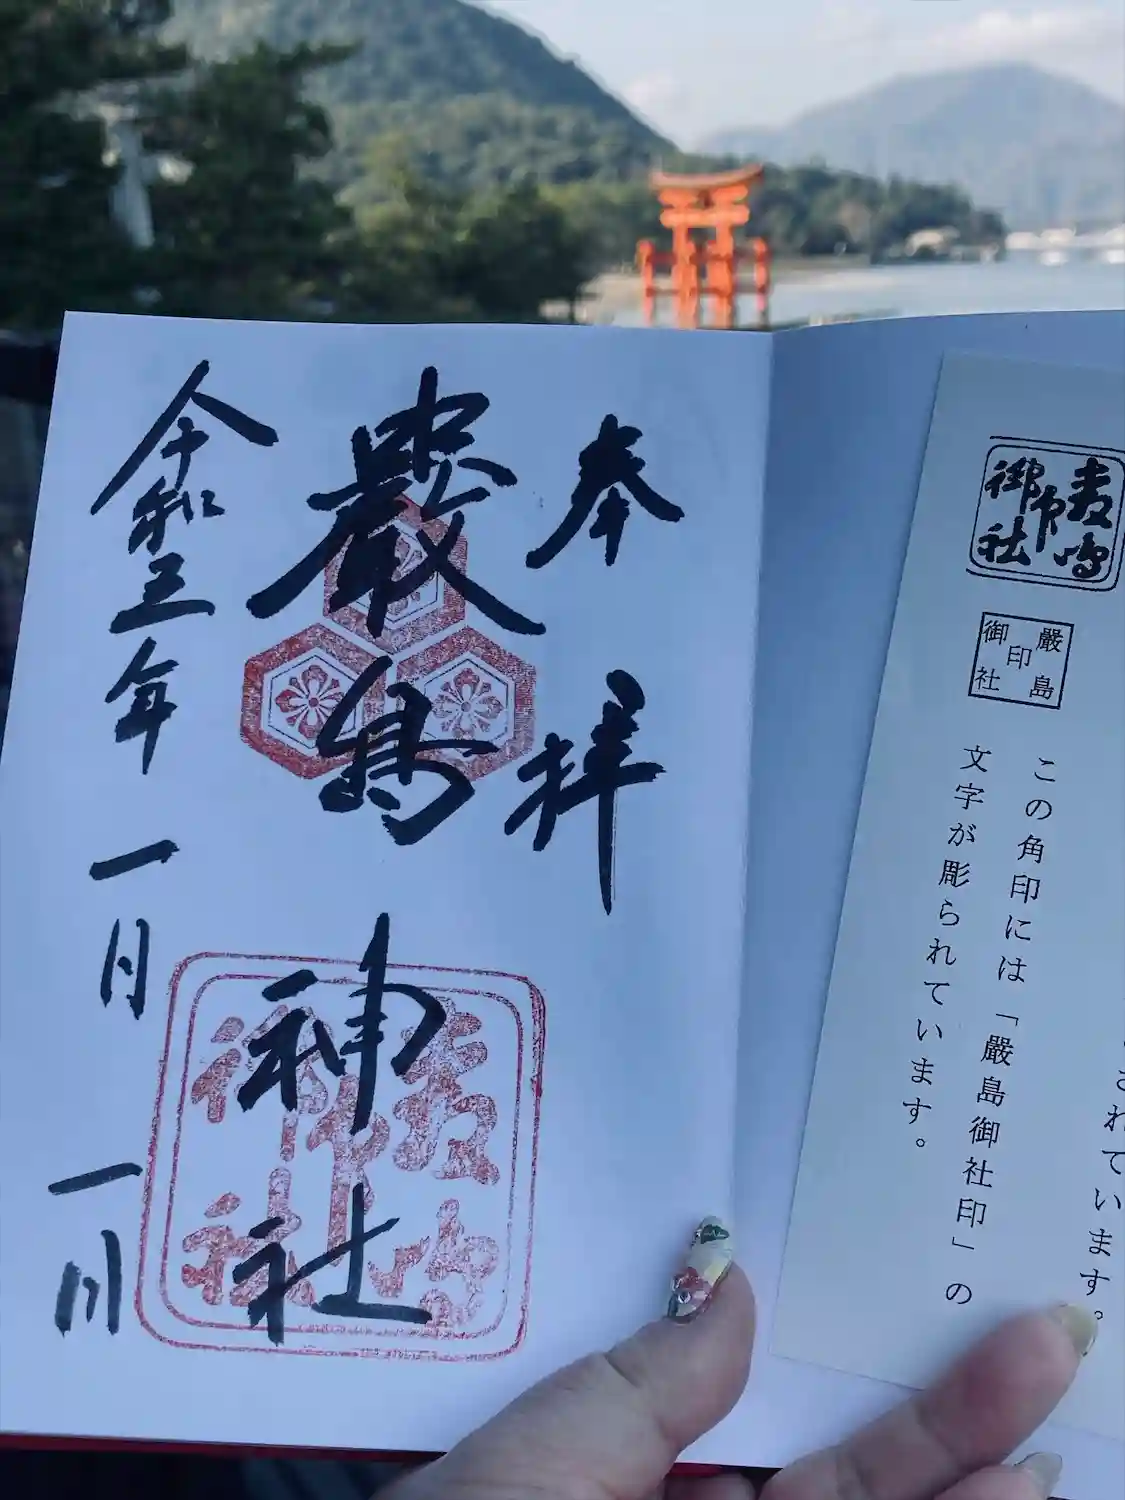 嚴島
印
御社
されています。
この角印には「嚴島御社印」の
文字が彫られています。
奉拝
嚴島神社
令和三年一月一日